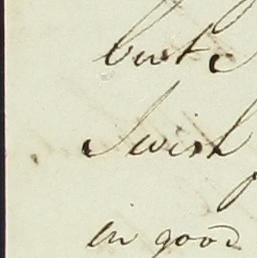 but
I wish
in good